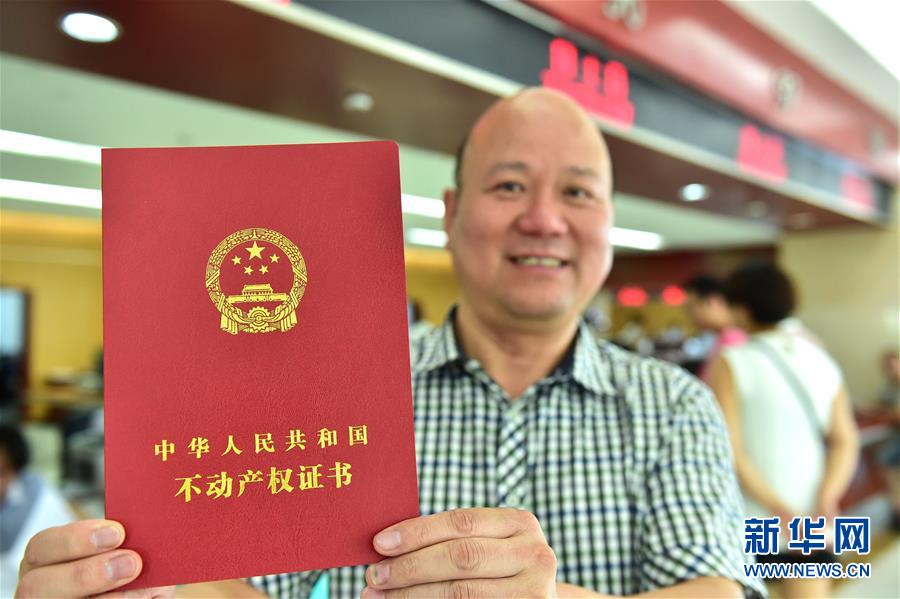 中华人民共和国
不动产权证书
新华网
WWW.NEWS.CN